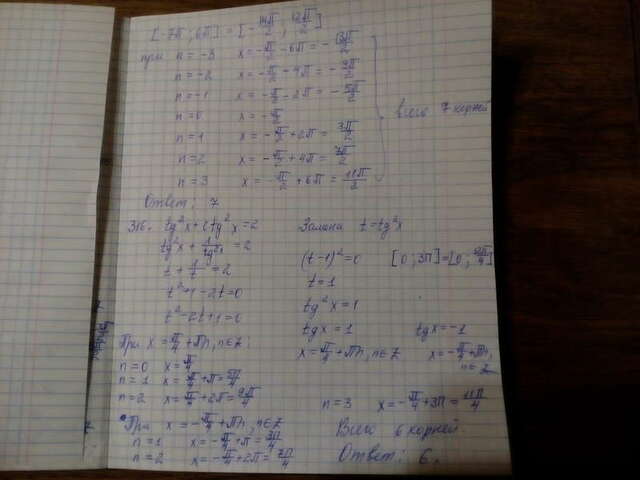 [-7π; 6π] = [-14π/2; 12π/2]
при n = -3 x = -π/2 - 6π = -13π/2
n = -2 x = -π/2 - 4π = -9π/2
n = -1 x = -π/2 - 2π = -5π/2
n = 0 x = -π/2
n = 1 x = -π/2 + 2π = 3π/2
n = 2 x = -π/2 + 4π = 7π/2
n = 3 x = -π/2 + 6π = 11π/2
всего 7 корней
Ответ: 7
316. tg²x + ctg²x = 2
tg²x + 1/tg²x = 2
t + 1/t = 2
t² + 1 - 2t = 0
t² - 2t + 1 = 0
Замена t = tg²x
(t-1)² = 0 [0; 3π] = [0;
t = 1
tg²x = 1
tgx = 1 tgx = -1
x = π/4 + πn, n∈Z x = -π/4 + πn, n∈Z
При x = π/4 + πn, n∈Z
n = 0 x = π/4
n = 1 x = π/4 + π = 5π/4
n = 2 x = π/4 + 2π = 9π/4
При x = -π/4 + πn, n∈Z
n = 1 x = -π/4 + π = 3π/4
n = 2 x = -π/4 + 2π = 7π/4
n = 3 x = -π/4 + 3π = 11π/4
Всего 6 корней.
Ответ: 6.